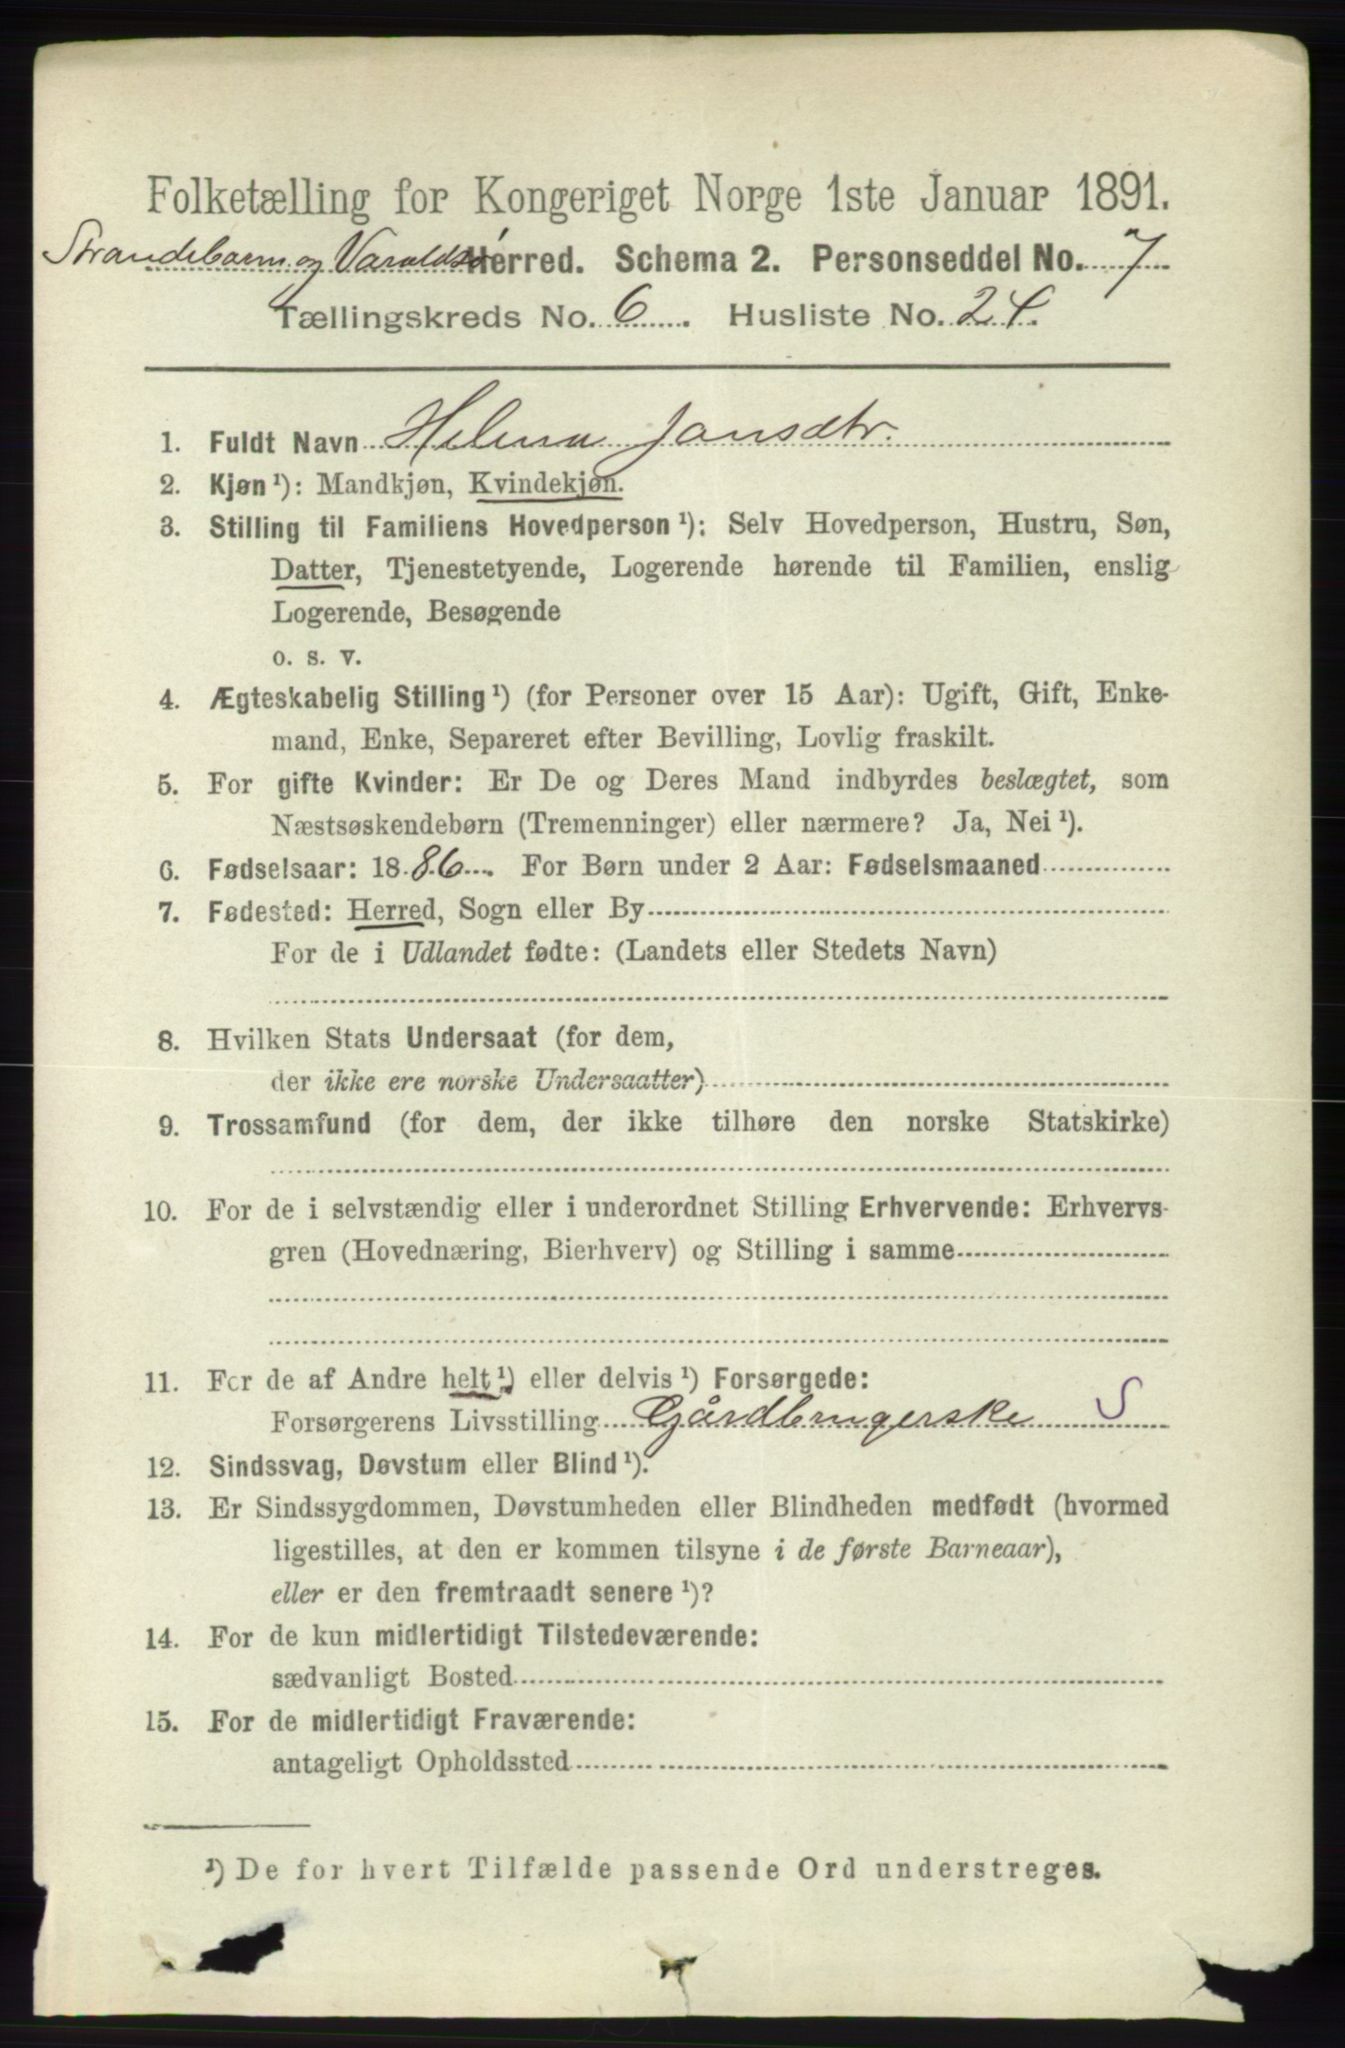 Folketælling for Kongeriget Norge 1ste Januar 1891.
Strandebarm og Varaldsø Herred. Schema 2. Personseddel No. 7
Tællingskreds No. 6. Husliste No. 24.
1. Fuldt Navn Helena Jansdtr.
2. Kjøn ¹): Mandkjøn, Kvindekjøn.
3. Stilling til Familiens Hovedperson ¹): Selv Hovedperson, Hustru, Søn,
Datter, Tjenestetyende, Logerende hørende til Familien, enslig
Logerende, Besøgende
o. s. v.
4. Ægteskabelig Stilling ¹) (for Personer over 15 Aar): Ugift, Gift, Enke-
mand, Enke, Separeret efter Bevilling, Lovlig fraskilt.
5. For gifte Kvinder: Er De og Deres Mand indbyrdes beslægtet, som
Næstsøskendebørn (Tremenninger) eller nærmere? Ja, Nei ¹).
6. Fødselsaar: 1886. For Børn under 2 Aar: Fødselsmaaned
7. Fødested: Herred, Sogn eller By
For de i Udlandet fødte: (Landets eller Stedets Navn)
8. Hvilken Stats Undersaat (for dem,
der ikke ere norske Undersaatter)
9. Trossamfund (for dem, der ikke tilhøre den norske Statskirke)
10. For de i selvstændig eller i underordnet Stilling Erhvervende: Erhvervs-
gren (Hovednæring, Bierhverv) og Stilling i samme
11. For de af Andre helt ¹) eller delvis ¹) Forsørgede:
Forsørgerens Livsstilling Gårdbrugerske S
12. Sindssvag, Døvstum eller Blind ¹).
13. Er Sindssygdommen, Døvstumheden eller Blindheden medfødt (hvormed
ligestilles, at den er kommen tilsyne i de første Barneaar),
eller er den fremtraadt senere ¹)?
14. For de kun midlertidigt Tilstedeværende:
sædvanligt Bosted
15. For de midlertidigt Fraværende:
antageligt Opholdssted
¹) De for hvert Tilfælde passende Ord understreges.